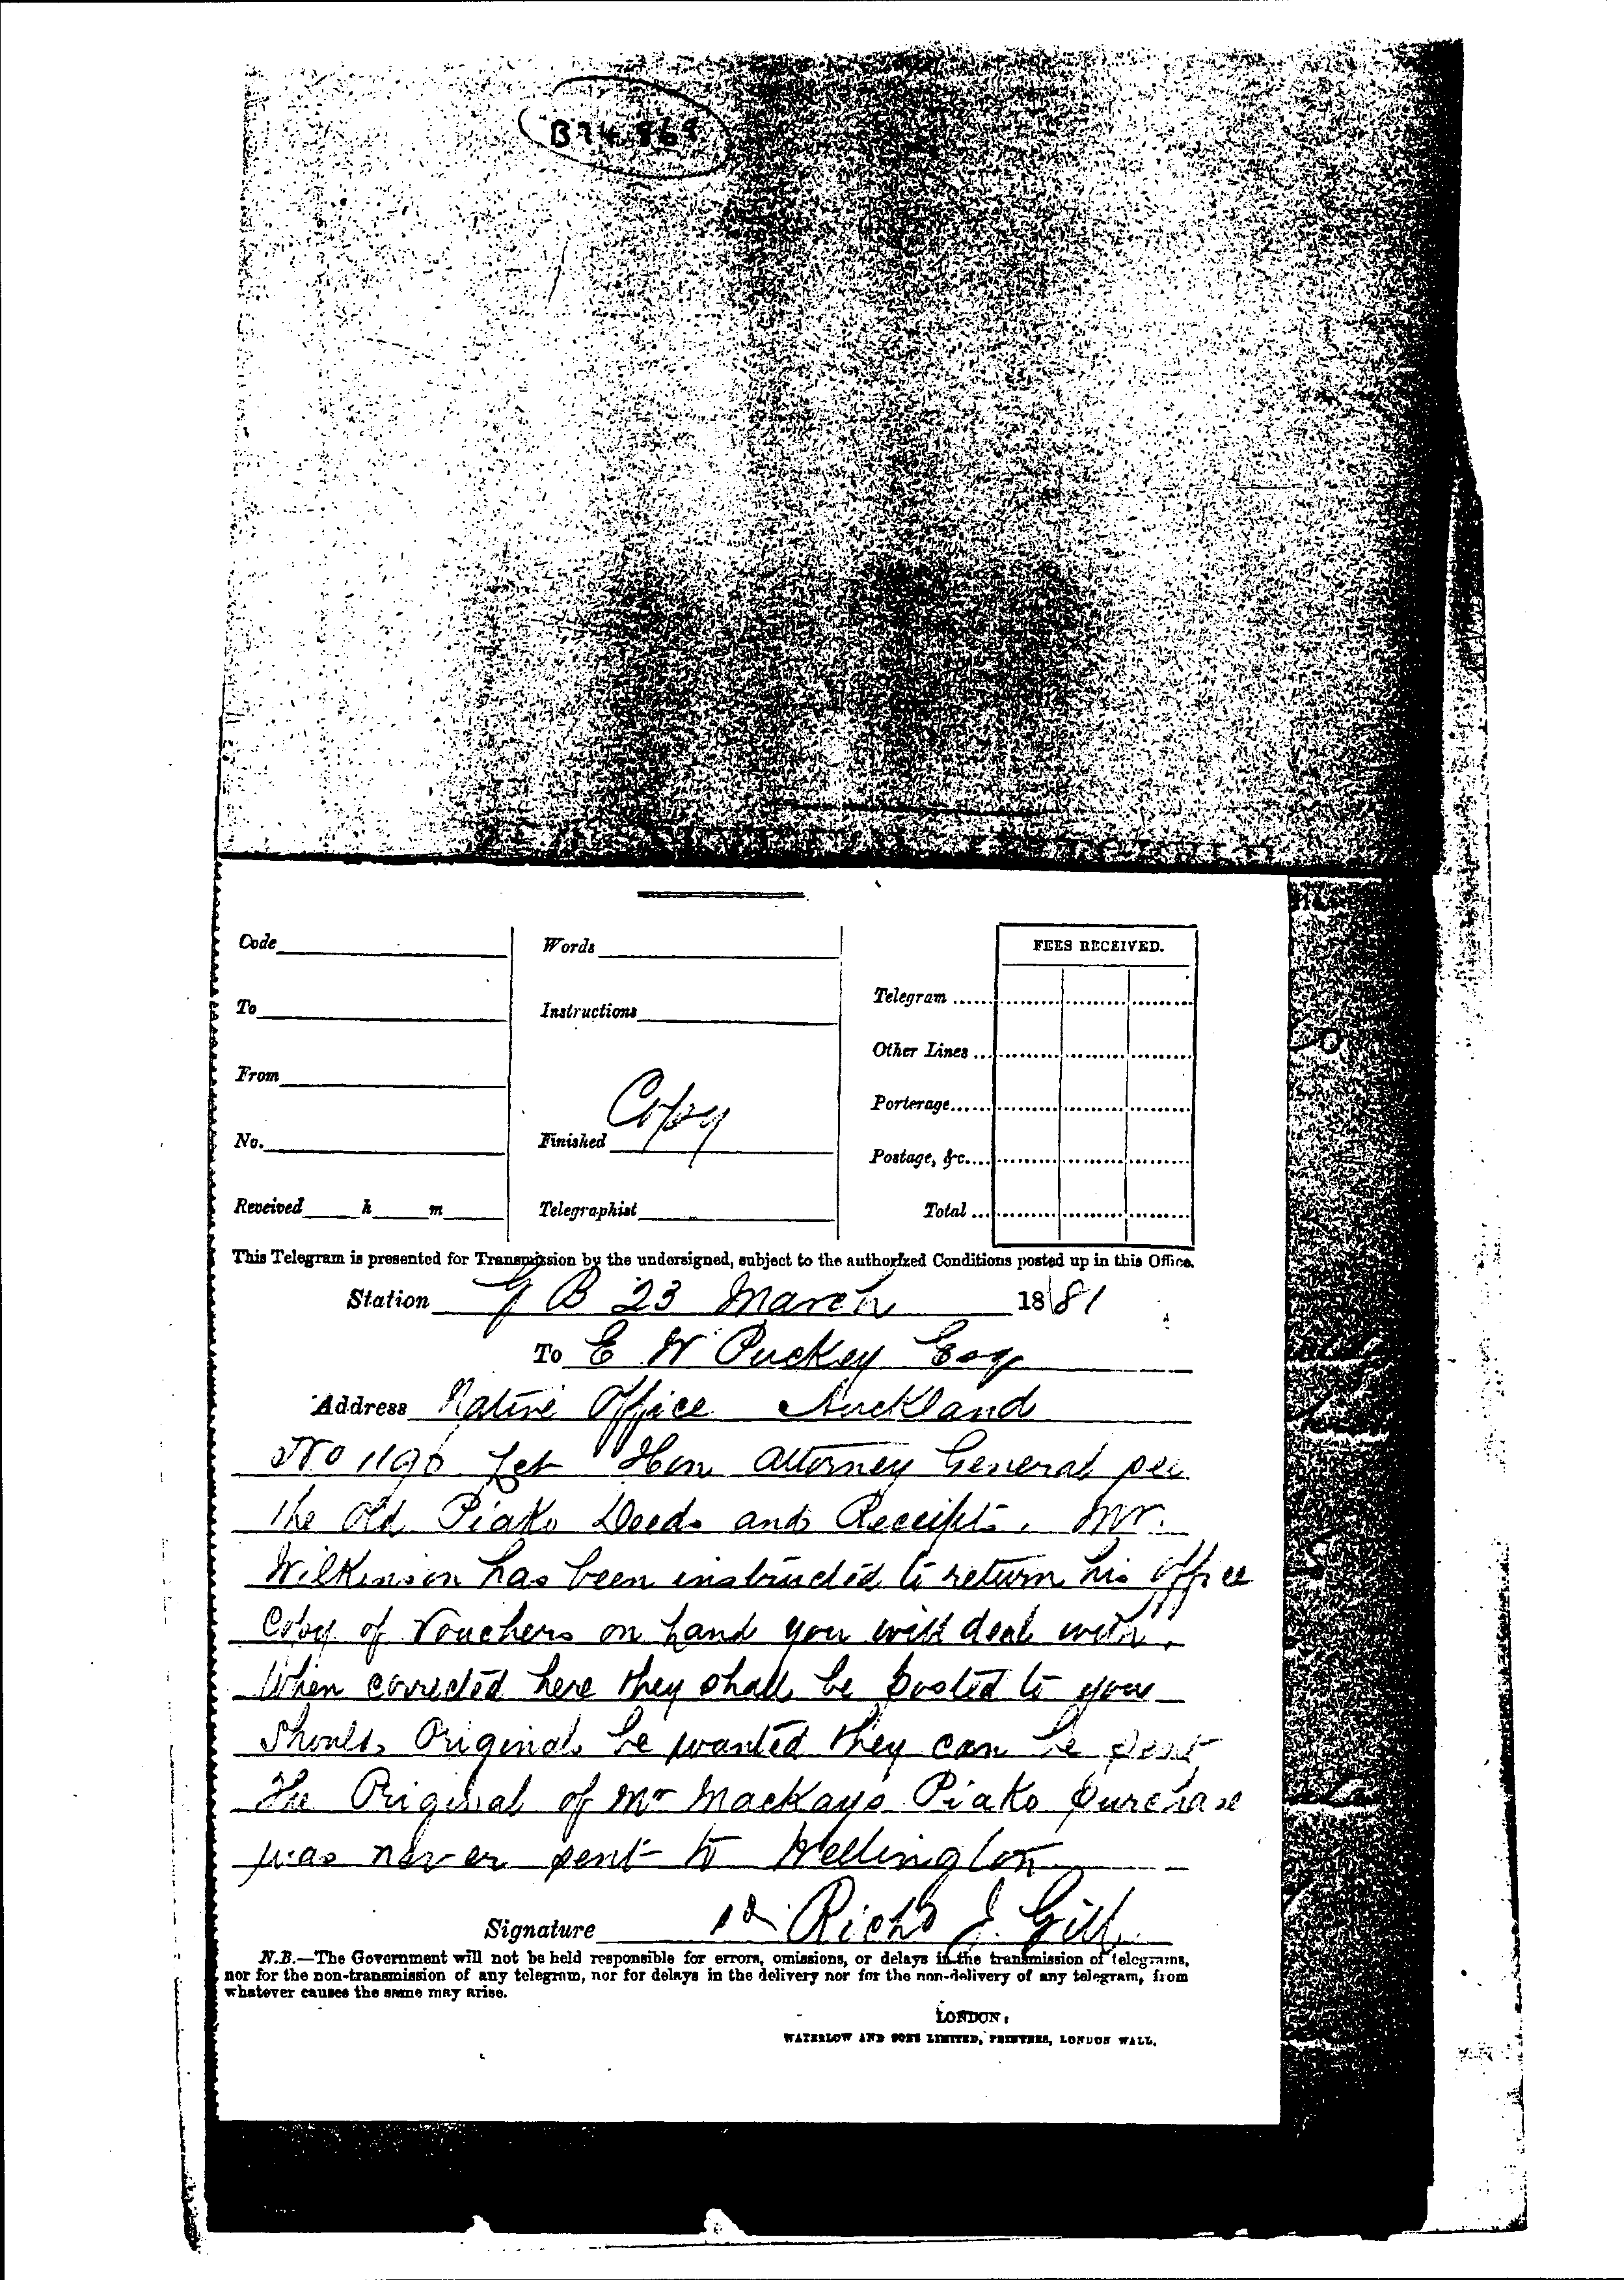 Code
Words
FEES RECEIVED.
To
Instructions
Telegram ......
Other Lines ...
From
Copy
Porterage......
No.
Finished
Postage, &c....
Received h m
Telegraphist
Total ...
This Telegram is presented for Transmission by the undersigned, subject to the authorized Conditions posted up in this Office.
Station G B 23 March 1881
To E W Puckey Esq
Address Native Office Auckland
No 1190 Let Hon Attorney General see
the old Piako Deeds and Receipts. Mr.
Wilkinson has been instructed to return his office
Copy of Vouchers on hand you will deal with.
When corrected here they shall be posted to you
Should Original be wanted they can be sent
The Original of Mr Mackays Piako purchase
was never sent to Wellington
Signature Richd J. Gill
N.B.—The Government will not be held responsible for errors, omissions, or delays in the transmission of telegrams,
nor for the non-transmission of any telegram, nor for delays in the delivery nor for the non-delivery of any telegram, from
whatever causes the same may arise.
LONDON:
WATERLOW AND SONS LIMITED, PRINTERS, LONDON WALL.